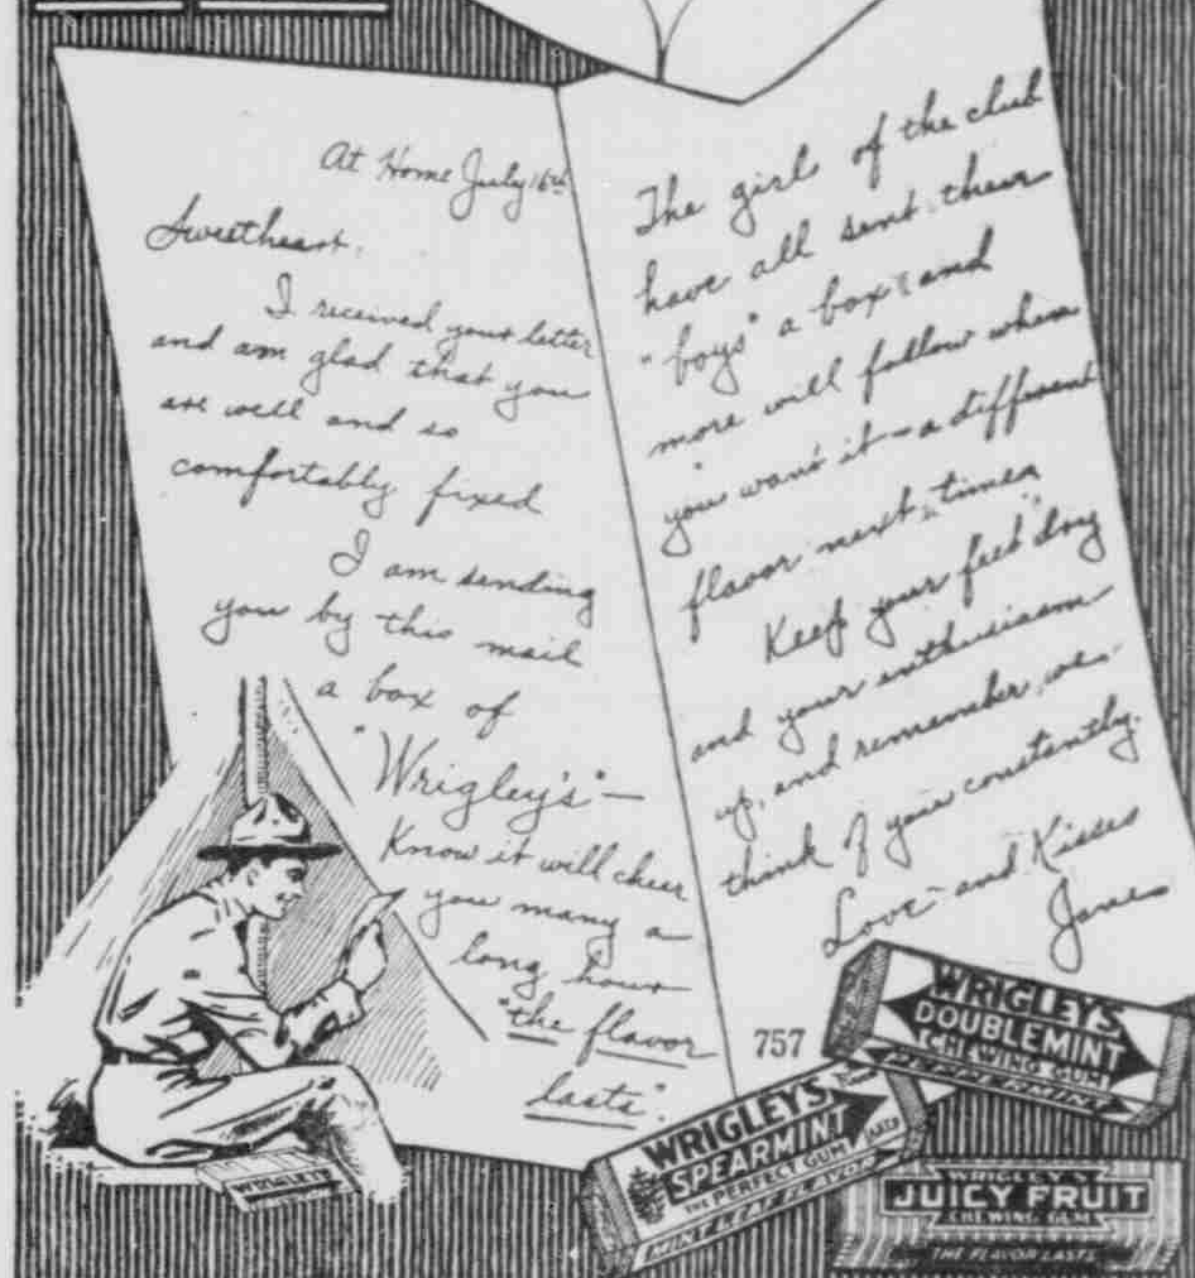 At Home July 16th
Sweetheart.
I received your letter
and am glad that you
are well and so
comfortably fixed
I am sending
you by this mail
a box of
"Wrigley's"—
Know it will cheer
you many a
long hour
"the flavor
lasts".
The girls of the club
have all sent their
"boys" a box and
more will follow when
you want it – a different
flavor next time.
Keep your feet "dry"
and your enthusiasm
up, and remember we
think of you constantly.
Love and Kisses
Jane
757
WRIGLEYS
DOUBLEMINT
CHEWING GUM
PEPPERMINT
WRIGLEYS
SPEARMINT
THE PERFECT GUM
MINT LEAF FLAVOR
WRIGLEY'S
JUICY FRUIT
CHEWING GUM
THE FLAVOR LASTS
WRIGLEYS